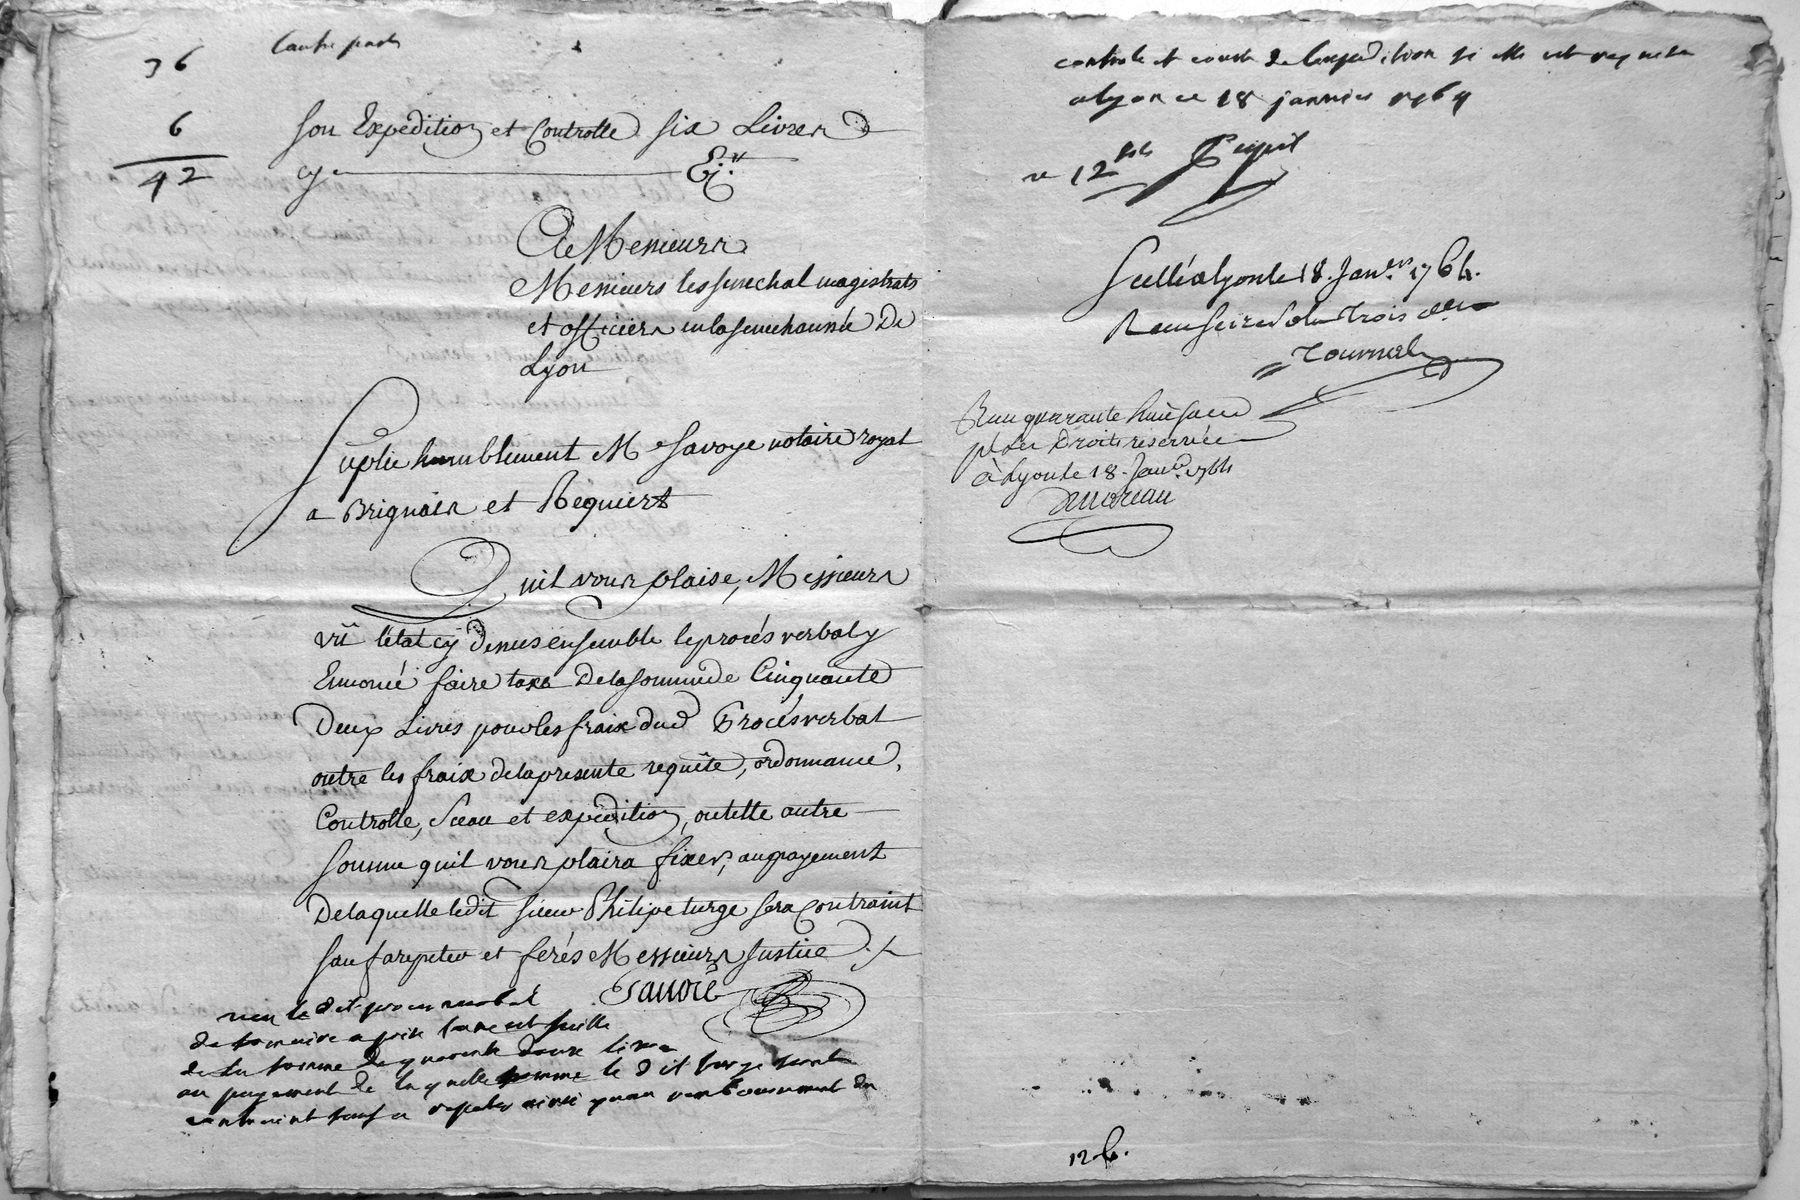 36 l'autre part
6 son Expedition et Controlle six Livres
42 cy 6.ᵗᵗ
A Messieurs
Messieurs les senechal magistrats
et officiers en la senechaussée De
Lyon
Suplie humblement Mᵉ Savoye notaire royal
a Brignais et Requiert
Quil vous plaise, Messieurs
vû l'etat cy Dessus ensemble le procés verbal y
Ennoncé faire taxe De la somme de Cinquante
Deux Livres pour les fraix dud Procés verbal
outre les fraix de la presente requête, ordonnance,
Controlle, Sceau et expedition, ou telle autre
somme quil vous plaira fixer, au payement
De laquelle ledit sieur Philipe turge sera Contraint
sauf a repeter et ferés Messieurs Justice
Savoie
veu le dit procès verbal
de la somme de quarante deux livres
au payement de la quelle somme le dit turge sera
contraint sauf a repeter ainsi quau remboursement du
controle et cout de lexpedition si elle est requise
a lyon ce 18 janvier 1764
12
Scellé a Lyon le 18. Janᵉʳ. 1764.
Tournel
Reçu quarante huit sous
pʳ les Droits reservés
à Lyon le 18. Janᵉʳ. 1764
Damoreau
12